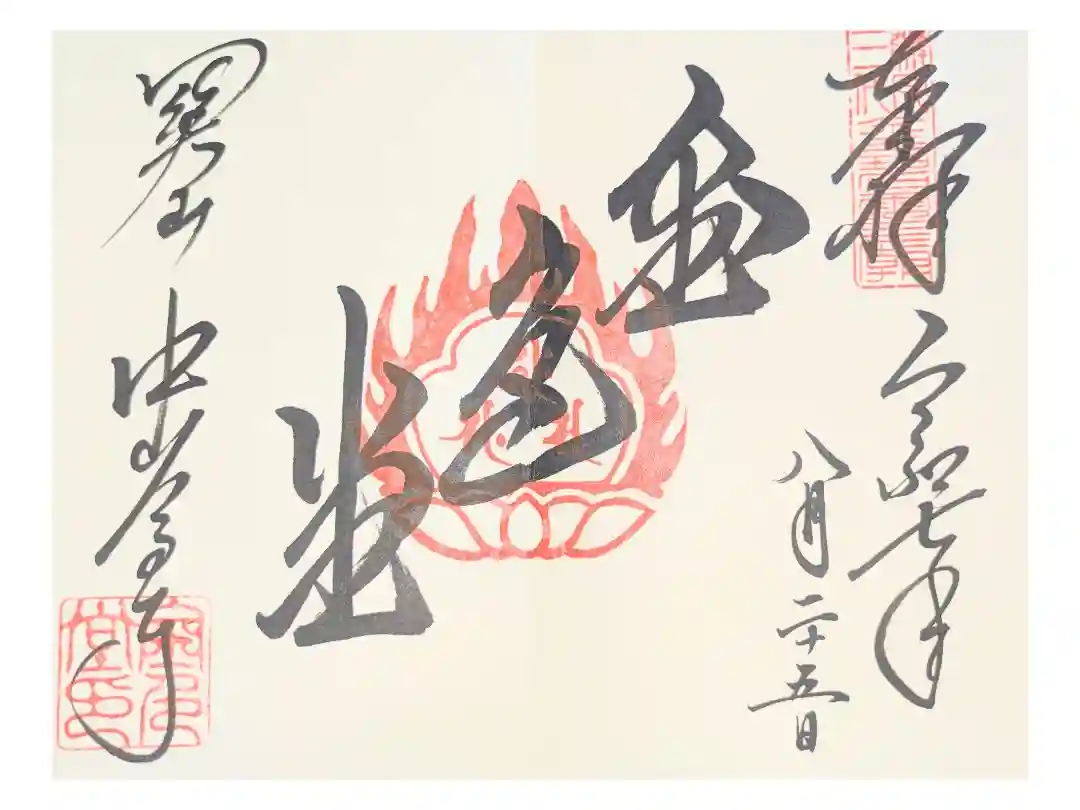 奉拝 令和七年
八月二十五日
金色堂
関山 中尊寺